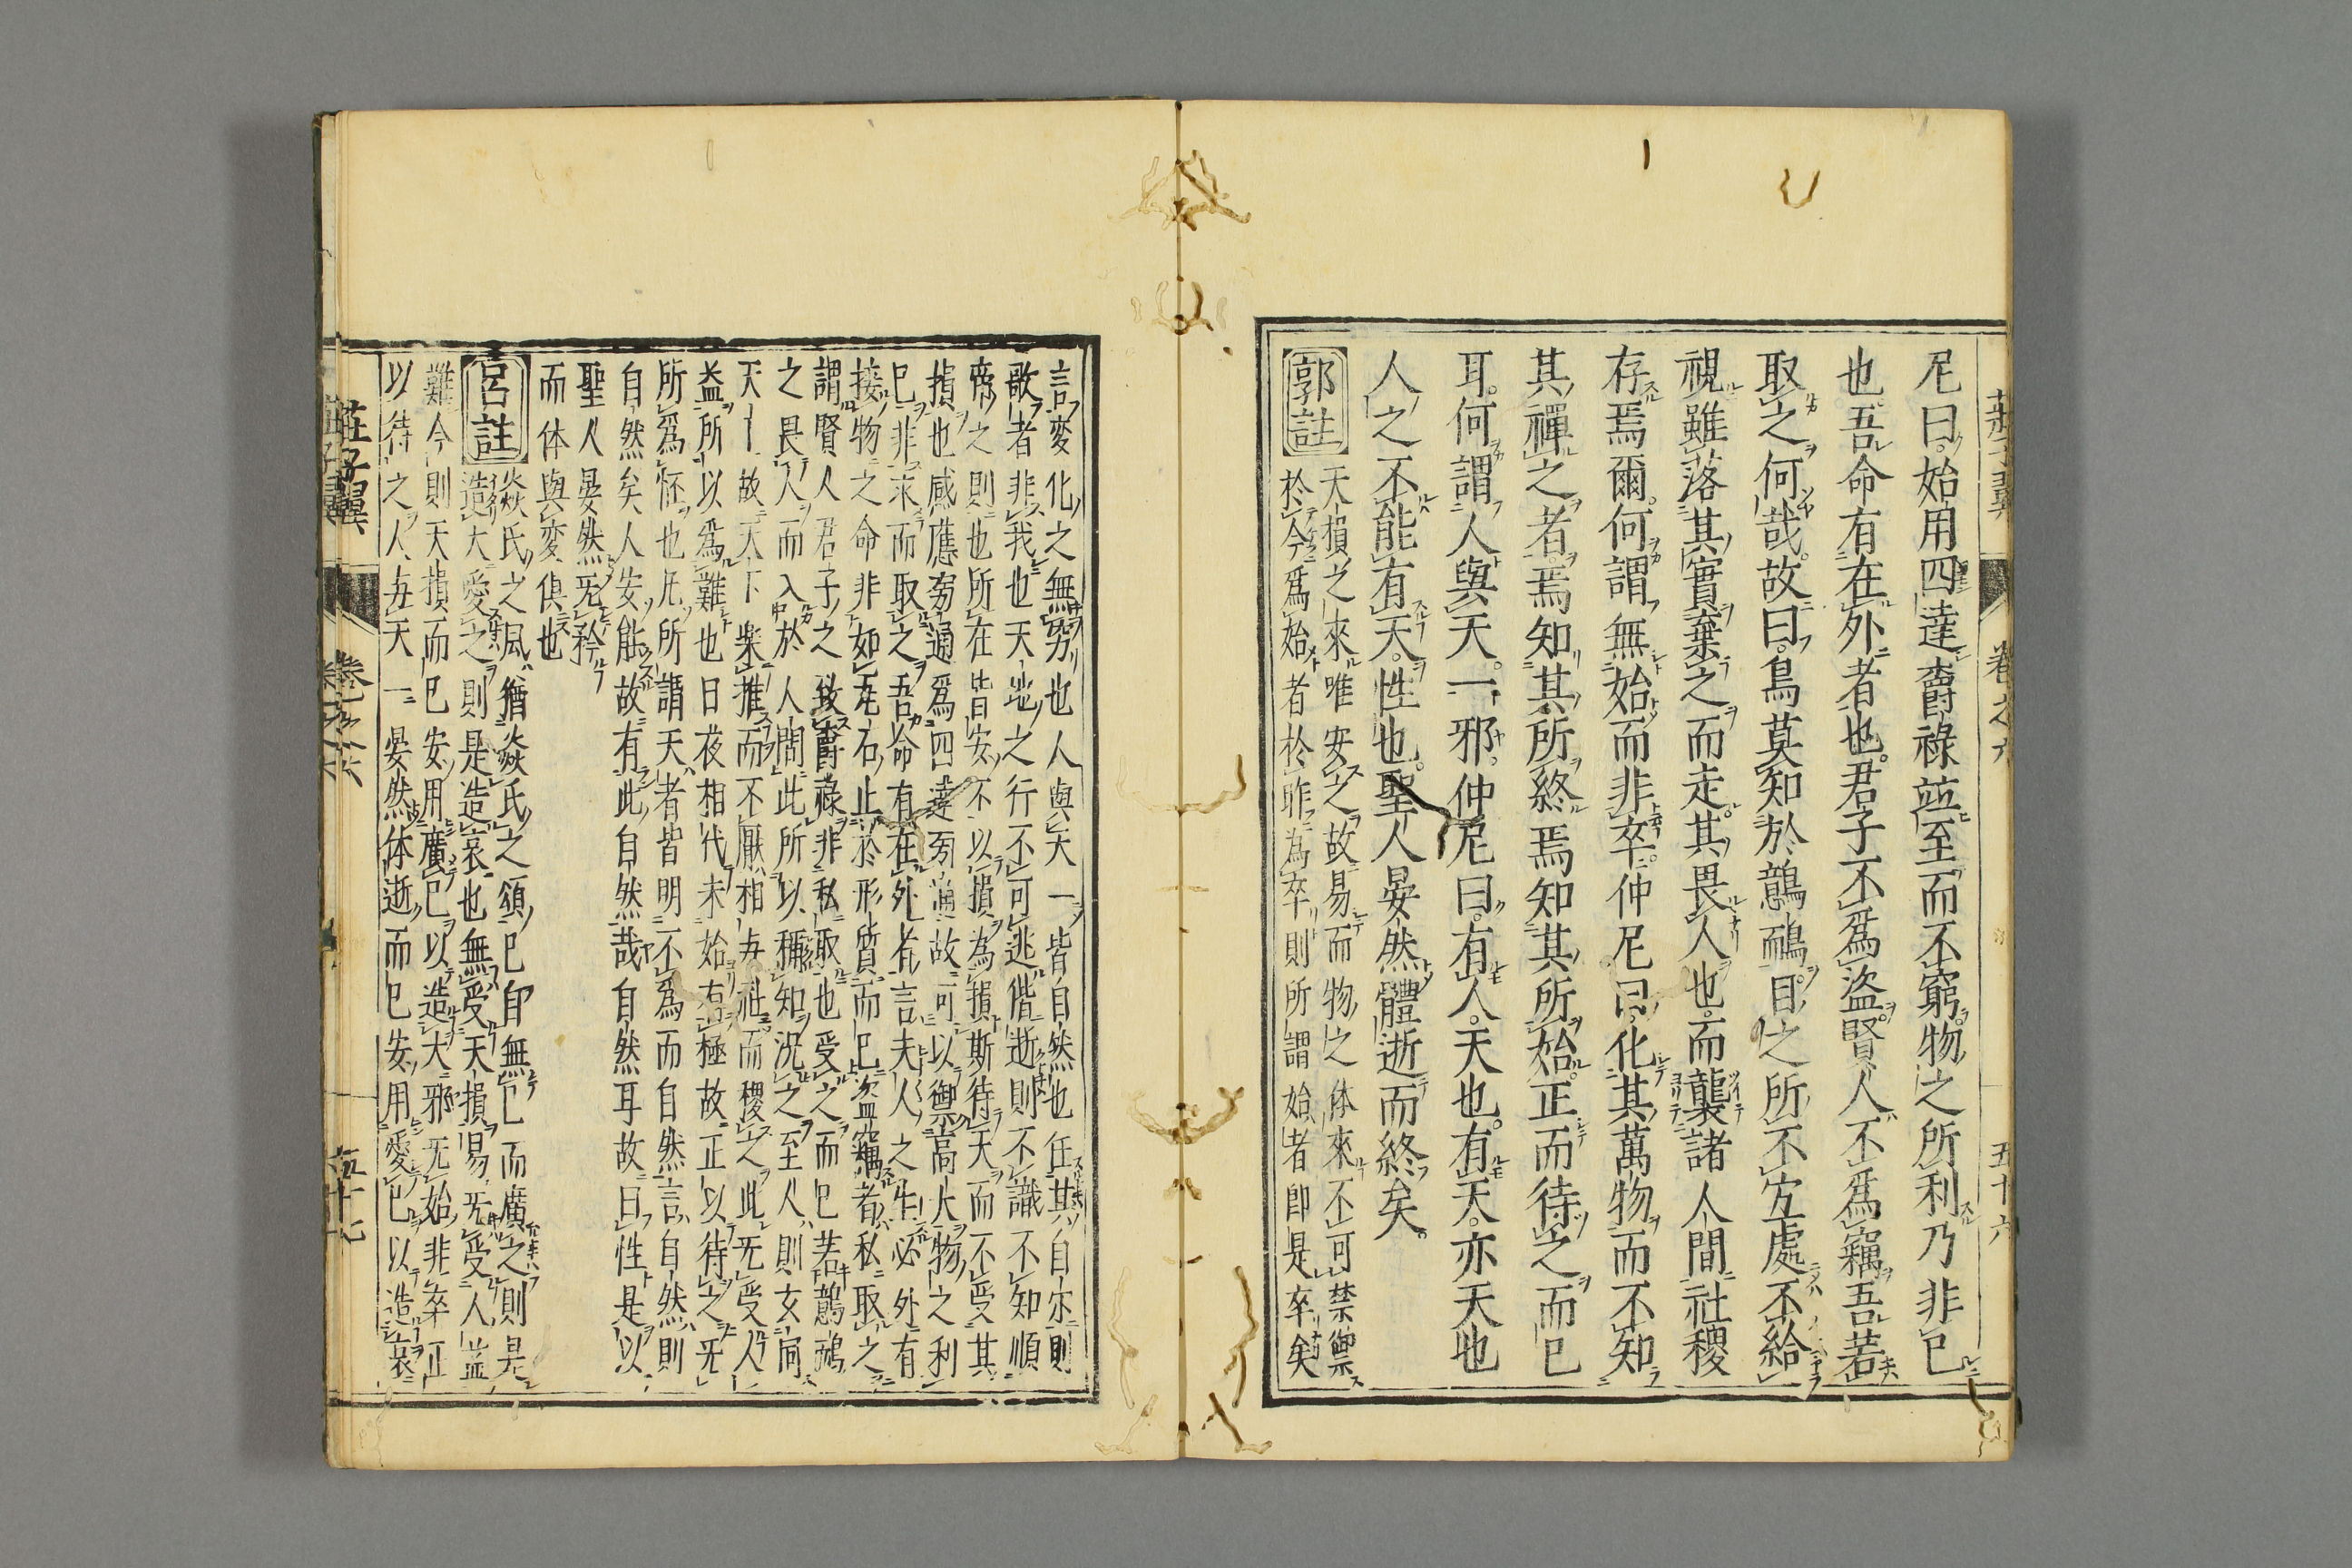 尼曰。始用四達。爵祿並至而不窮。物之所利乃非已
也。吾命有在外者也。君子不爲盜。賢人不爲竊。吾若
取之何哉。故曰。鳥莫知於鷾鴯。目之所不宜處不給
視。雖落其實棄之而走。其畏人也。而襲諸人間社稷
存焉爾。何謂無始而非卒。仲尼曰。化其萬物而不知
其禪之者。焉知其所終。焉知其所始。正而待之而已
耳。何謂人與天一邪。仲尼曰。有人。天也。有天。亦天也
人之不能有天。性也。聖人晏然體逝而終矣。
郭註
天損之來唯安之故易而物之体來不可禁禦
於今爲始者於昨為卒則所謂始者即是卒矣
言変化之無窮也人與天一皆自然也任其自尔則
歌者非我也天地之行不可逃偕逝則不識不知順
帝之則也所在皆安不以損為損斯待天而不受其
損也感應旁通爲四達旁通故可以禦高大物之利
已非求而取之吾命有在外者言夫人之生必外有
接物之命非如瓦石止於形質而已盗竊者私取之
謂賢人君子之致爵祿非私取也受之而已若鷾鴯
之畏人而入於人間此所以稱知況之至人則玄同
天下故天下樂推而不厭相与社而稷之此无受人
益所以為難也日夜相代未始有極故正以待之无
所爲怀也凡所謂天者皆明不爲而自然言自然則
自然矣人安能故有此自然哉自然耳故曰性是以
聖人晏然无矜
而体與変俱也
呂註
焱氏之風猶焱氏之頌已自無已而廣之則是
造大愛之則是造哀也無受天損易无受人益
難今則天損而已安用廣已以造大邪无始非卒正
以待之人与天一晏然体逝而已安用愛已以造哀
莊子翼
卷之六
五十六
莊子翼
卷之六
五十七